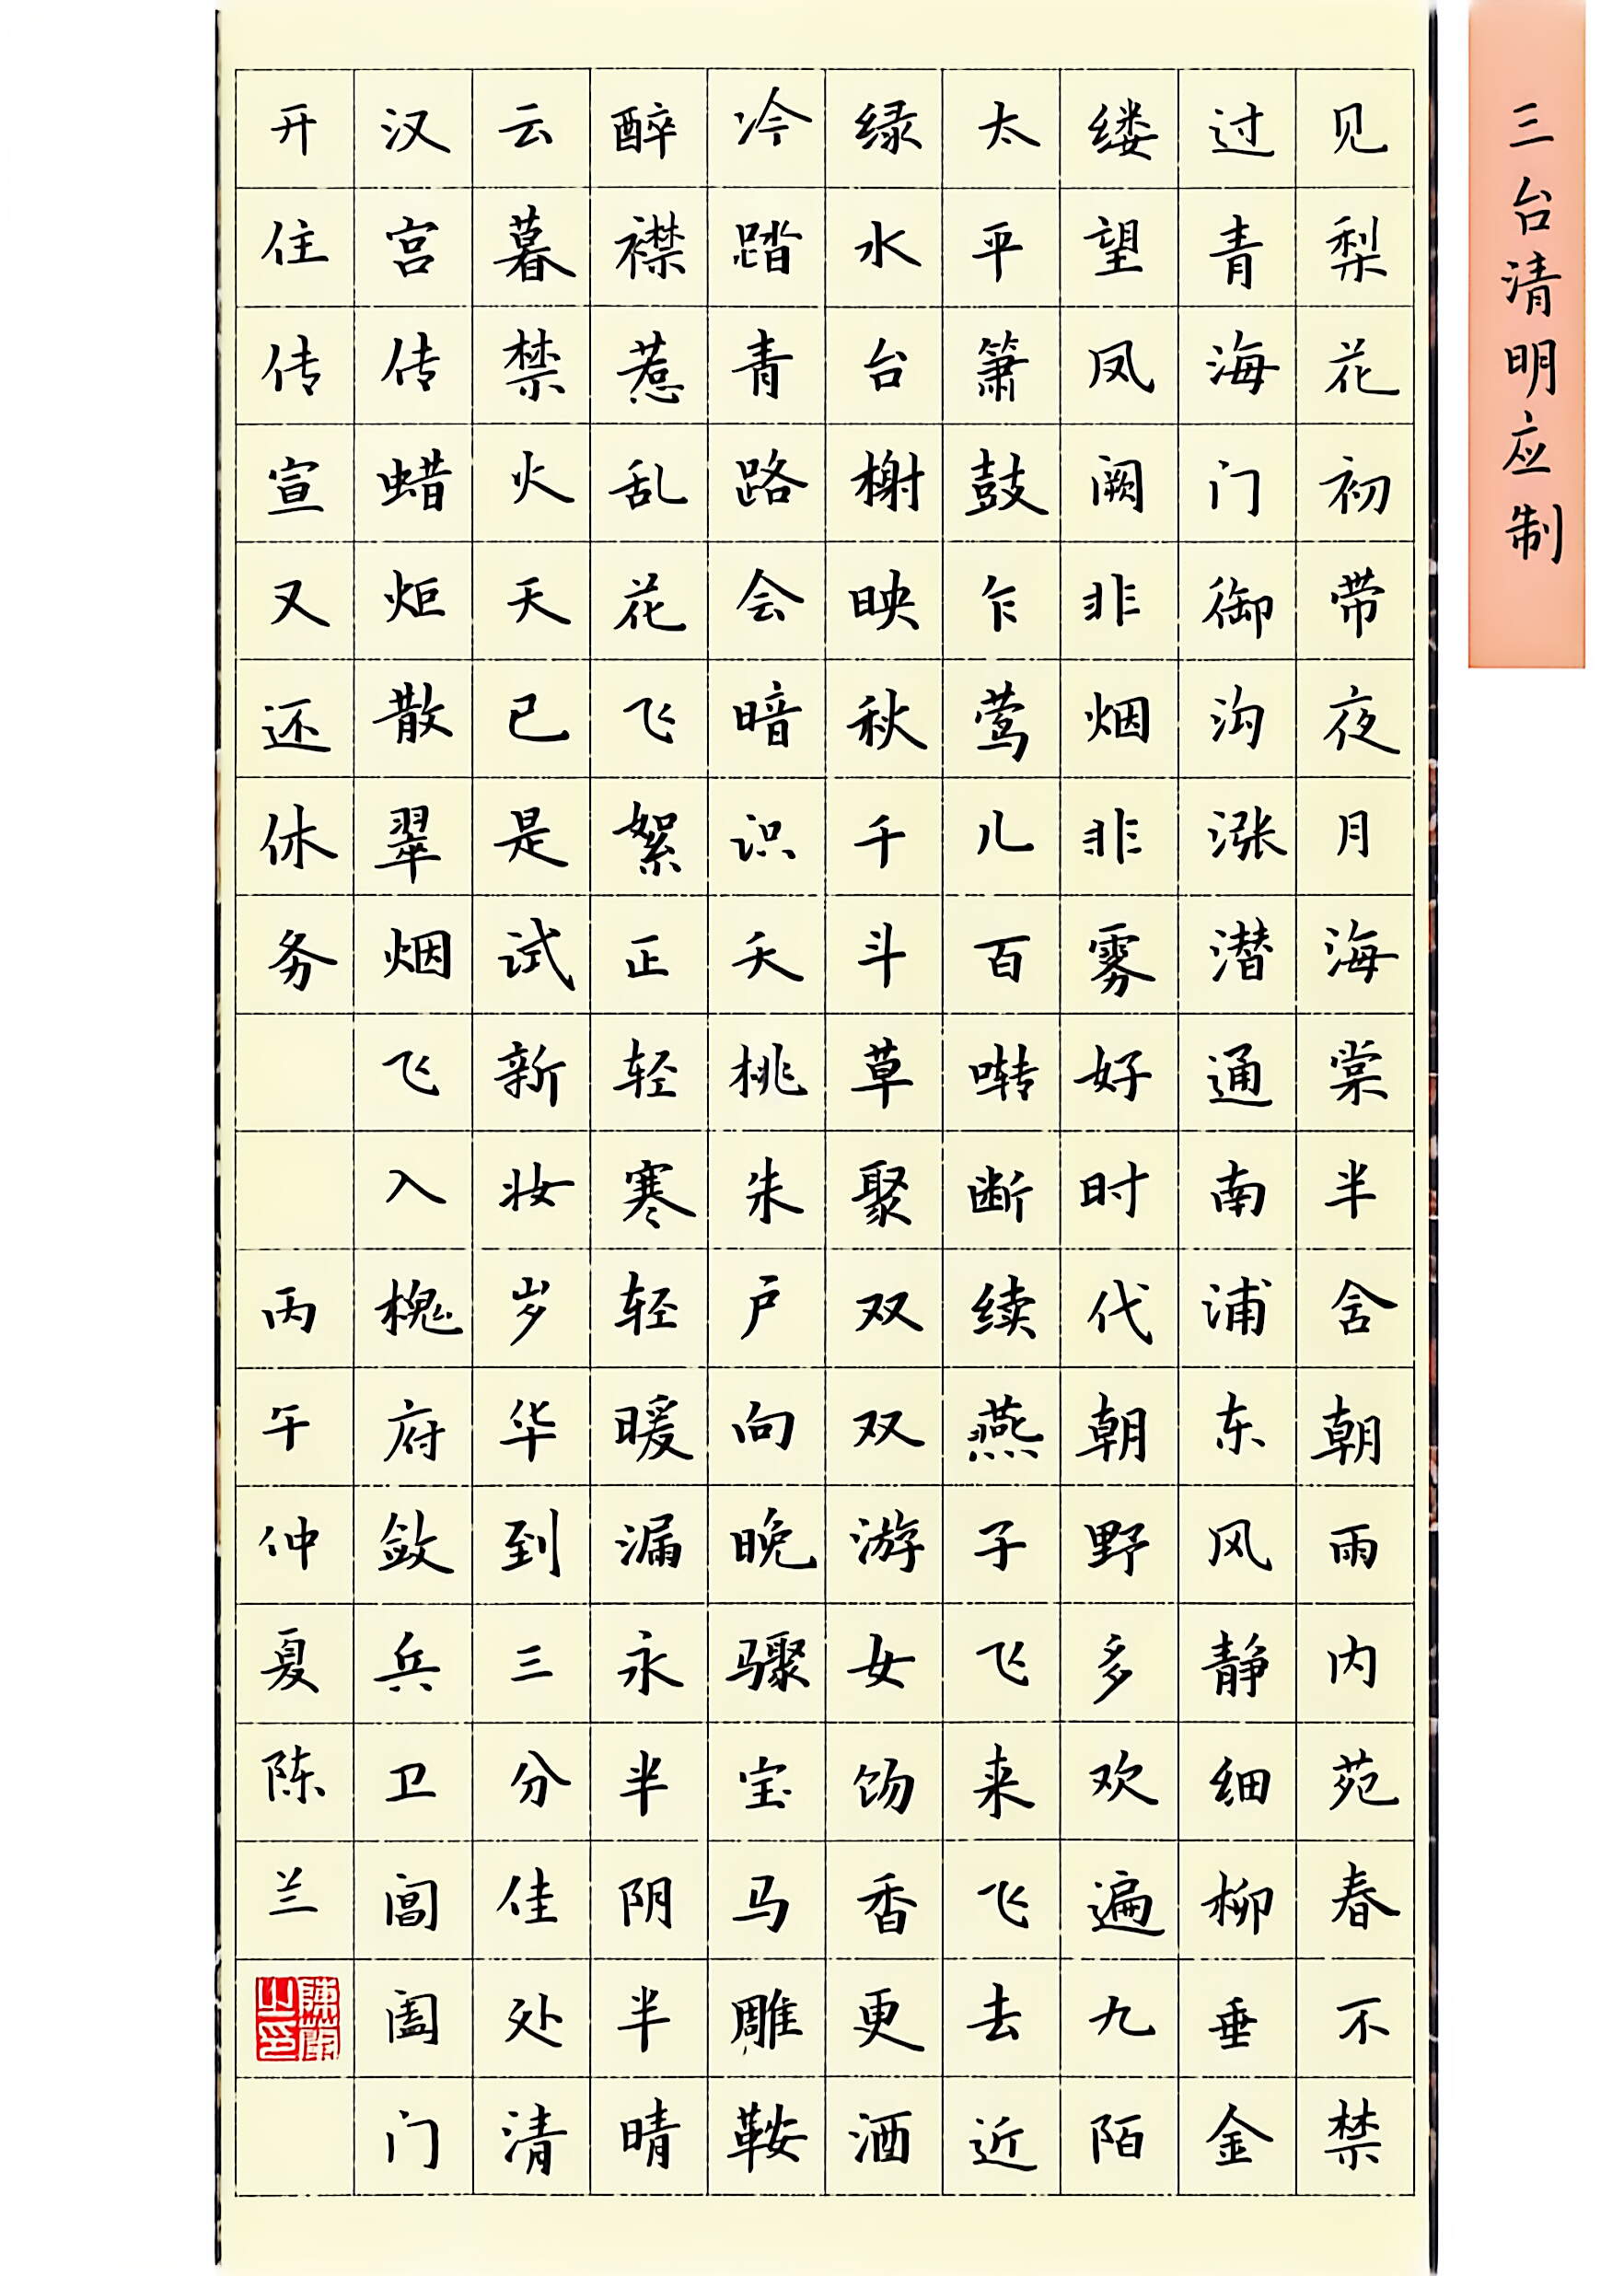 三台清明应制
见梨花初带夜月海棠半含朝雨内苑春不禁
过青海门御沟涨潜通南浦东风静细柳垂金
缕望凤阙非烟非雾好时代朝野多欢遍九陌
太平箫鼓乍莺儿百啭断续燕子飞来飞去近
绿水台榭映秋千斗草聚双双游女饧香更酒
冷踏青路会暗识夭桃朱户向晚骤宝马雕鞍
醉襟惹乱花飞絮正轻寒轻暖漏永半阴半晴
云暮禁火天已是试新妆岁华到三分佳处清
汉宫传蜡炬散翠烟飞入槐府敛兵卫阊阖门
开住传宣又还休务 丙午仲夏陈兰
陳蘭之印